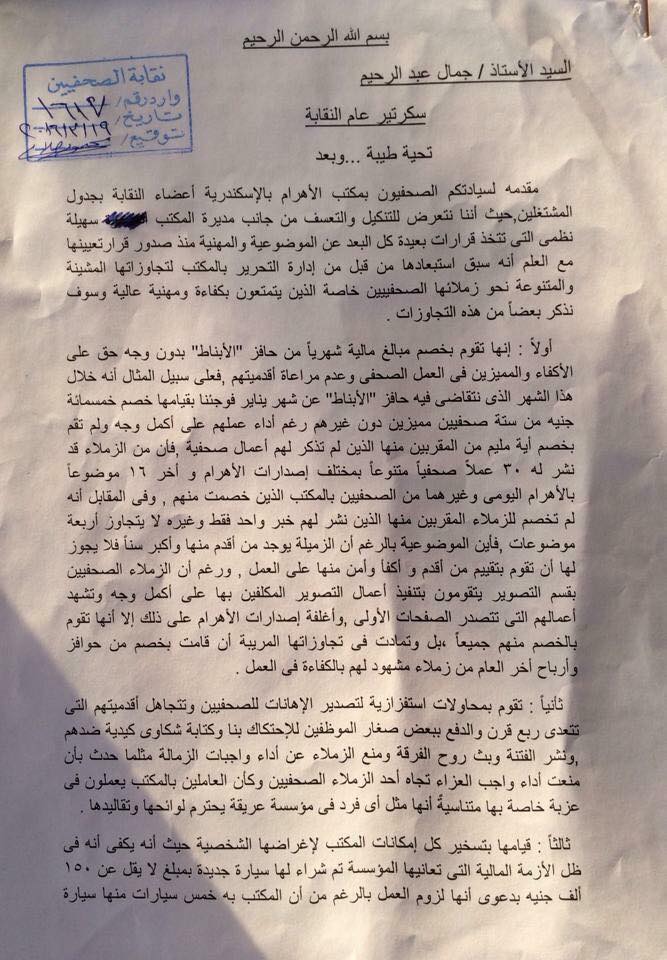 بسم الله الرحمن الرحيم
السيد الأستاذ / جمال عبد الرحيم
نقابة الصحفيين
وارد رقم/ ١٦١٢٧
تاريخ/ ٢٠١٦/٣/١٩
توقيع/
سكرتير عام النقابة
تحية طيبة ...وبعد
مقدمه لسيادتكم الصحفيون بمكتب الأهرام بالإسكندرية أعضاء النقابة بجدول
المشتغلين,حيث أننا نتعرض للتنكيل والتعسف من جانب مديرة المكتب سهيلة
نظمى التى تتخذ قرارات بعيدة كل البعد عن الموضوعية والمهنية منذ صدور قرارتعيينها
مع العلم أنه سبق استبعادها من قبل من إدارة التحرير بالمكتب لتجاوزاتها المشينة
والمتنوعة نحو زملائها الصحفييين خاصة الذين يتمتعون بكفاءة ومهنية عالية وسوف
نذكر بعضاً من هذه التجاوزات .
أولاً : إنها تقوم بخصم مبالغ مالية شهرياً من حافز "الأبناط" بدون وجه حق على
الأكفاء والمميزين فى العمل الصحفى وعدم مراعاة أقدميتهم ,فعلى سبيل المثال أنه خلال
هذا الشهر الذى نتقاضى فيه حافز "الأبناط" عن شهر يناير فوجئنا بقيامها خصم خمسمائة
جنيه من ستة صحفيين مميزين دون غيرهم رغم أداء عملهم على أكمل وجه ولم تقم
بخصم أية مليم من المقربين منها الذين لم تذكر لهم أعمال صحفية ,فأن من الزملاء قد
نشر له ٣٠ عملاً صحفياً متنوعاً بمختلف إصدارات الأهرام و أخر ١٦ موضوعاً
بالأهرام اليومى وغيرهما من الصحفيين بالمكتب الذين خصمت منهم , وفى المقابل أنه
لم تخصم للزملاء المقربين منها الذين نشر لهم خبر واحد فقط وغيره لا يتجاوز أربعة
موضوعات ,فأين الموضوعية بالرغم أن الزميلة يوجد من أقدم منها وأكبر سناً فلا يجوز
لها أن تقوم بتقييم من أقدم و أكفأ وأمن منها على العمل , ورغم أن الزملاء الصحفيين
بقسم التصوير يتقومون بتنفيذ أعمال التصوير المكلفين بها على أكمل وجه وتشهد
أعمالهم التى تتصدر الصفحات الأولى ,وأغلفة إصدارات الأهرام على ذلك إلا أنها تقوم
بالخصم منهم جميعاً ،بل وتمادت فى تجاوزاتها المريبة أن قامت بخصم من حوافز
وأرباح أخر العام من زملاء مشهود لهم بالكفاءة فى العمل .
ثانياً : تقوم بمحاولات استفزازية لتصدير الإهانات للصحفيين وتتجاهل أقدميتهم التى
تتعدى ربع قرن والدفع ببعض صغار الموظفين للإحتكاك بنا وكتابة شكاوى كيدية ضدهم
,ونشر الفتنة وبث روح الفرقة ومنع الزملاء عن أداء واجبات الزمالة مثلما حدث بأن
منعت أداء واجب العزاء تجاه أحد الزملاء الصحفيين وكأن العاملين بالمكتب يعملون فى
عزبة خاصة بها متناسيةً أنها مثل أى فرد فى مؤسسة عريقة يحترم لوائحها وتقاليدها .
ثالثاً : قيامها بتسخير كل إمكانات المكتب لإغراضها الشخصية حيث أنه يكفى أنه فى
ظل الأزمة المالية التى تعانيها المؤسسة تم شراء لها سيارة جديدة بمبلغ لا يقل عن ١٥٠
ألف جنيه بدعوى أنها لزوم العمل بالرغم من أن المكتب به خمس سيارات منها سيارة